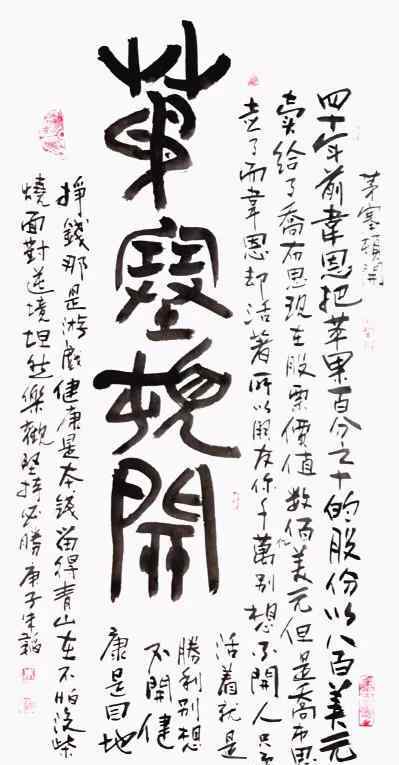 茅塞頓開
四十年前韋恩把苹果百分之十的股份以八百美元
賣給了喬布思現在股票價值數佰亿美元但是喬布思
走了而韋恩却活著所以朋友你千萬别想不開人只
活着就是
勝利别想
不開健
康是目地
茅塞頓開
掙錢那是游戲健康是本錢留得青山在不怕没柴
燒面對逆境坦然樂觀堅持必勝庚子